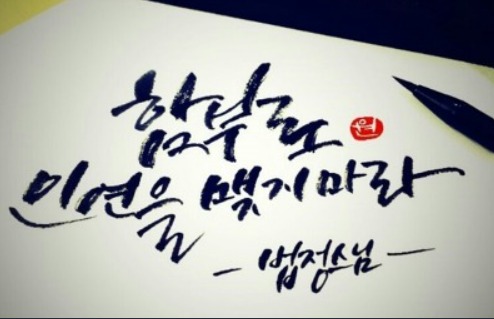 함부로
인연을 맺지마라
- 법정스님 -